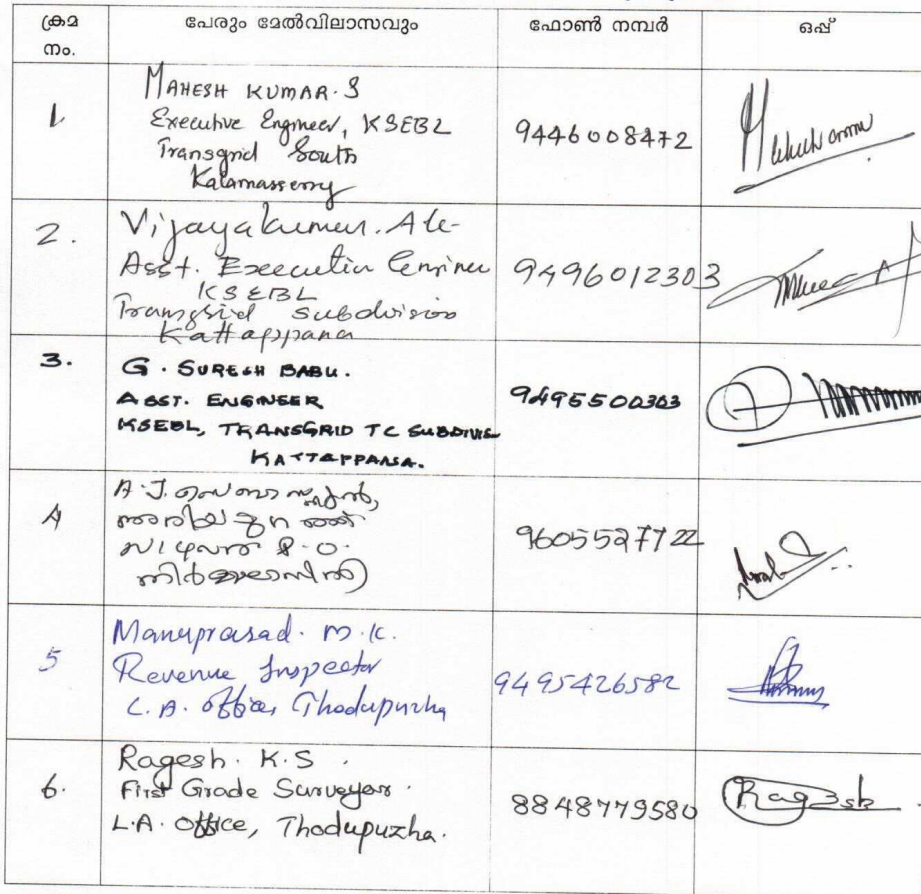 ക്രമ നം.
പേരും മേൽവിലാസവും
ഫോൺ നമ്പർ
ഒപ്പ്
1.
MAHESH KUMAR. S
Executive Engineer, KSEBL
Transgrid South
Kalamassery
9446008472
2.
Vijayakumar. A
Asst. Executive Engineer
KSEBL
Transgrid Subdivision
Kattappana
9496012303
3.
G. SURESH BABU.
ASST. ENGINEER
KSEBL, TRANSGRID TC SUBDIVIS
KATTAPPANA.
9495500303
4
A.J. സെബാസ്റ്റ്യൻ,
P.O.
9605527722
5
Manuprasad. M.K.
Revenue Inspector
L.A. Office, Thodupuzha
9495426582
6.
Ragesh. K.S.
First Grade Surveyor.
L.A. Office, Thodupuzha.
8848779580
Ragesh